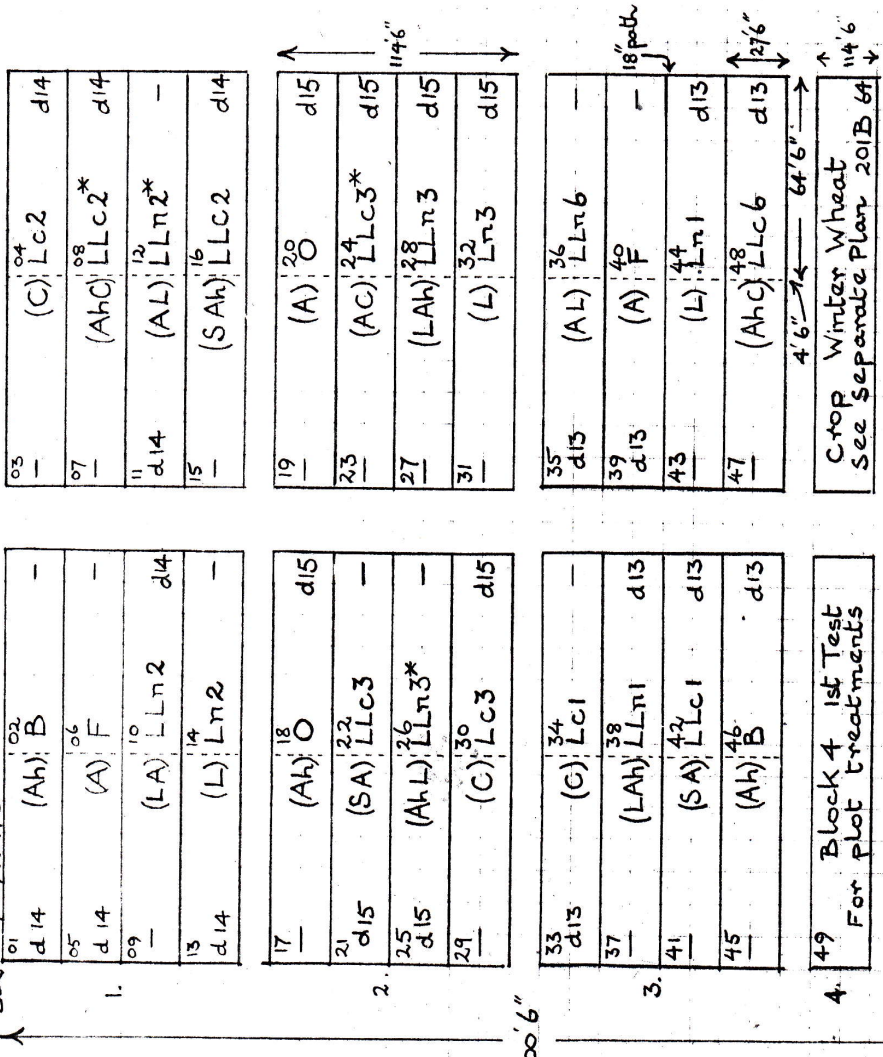 01 d14 (Ah) 02 B –
05 d14 (A) 06 F –
09 – (LA) 10 LLn2 d14
13 d14 (L) 14 Ln2 –
1.
03 – (C) 04 Lc2 d14
07 – (AhC) 08 LLc2* d14
11 d14 (AL) 12 LLn2* –
15 – (SAh) 16 LLC2 d14
17 – (Ah) 18 O d15
21 d15 (SA) 22 LLc3 –
25 d15 (AhL) 26 LLn3* –
29 – (C) 30 Lc3 d15
2.
19 – (A) 20 O d15
23 – (AC) 24 LLc3* d15
27 – (LAh) 28 LLn3 d15
31 – (L) 32 Ln3 d15
114'6"
33 d13 (C) 34 Lc1 –
37 – (LAh) 38 LLn1 d13
41 – (SA) 42 LLc1 d13
45 – (Ah) 46 B d13
3.
00'6"
35 d13 (AL) 36 LLn6 –
39 d13 (A) 40 F –
43 – (L) 44 Ln1 d13
47 – (AhC) 48 LLc6 d13
18" path
27'6"
4'6" 64'6"
4.
49 Block 4 1st Test
For plot treatments
Crop Winter Wheat
See separate Plan 201B 64
114'6"